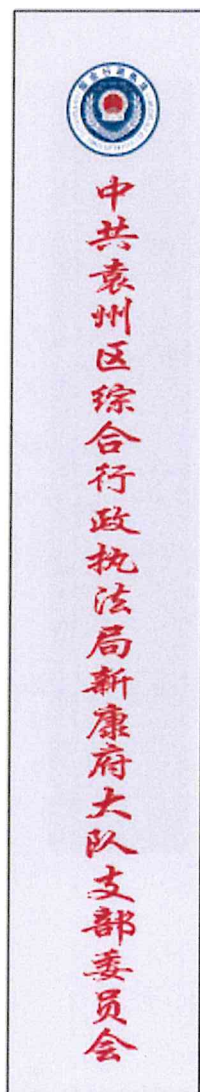 中共袁州区综合行政执法局新康府大队支部委员会